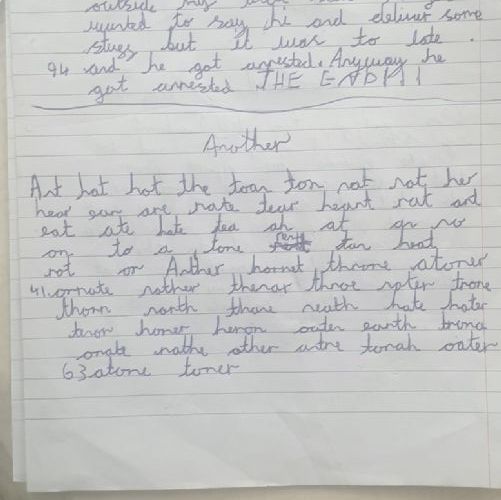 outside
wanted to say hi and deliver some
stuff but it was to late.
94 and he got arrested. Anyway he
got arrested THE END!!!
Another
Ant hat hot the toan ton nat not her
hear ear are rate tear heart rat art
eat ate hate tea ah at an no
on to a tone rent tan heat
rot or Anther hornet throne atoner
41. ornate rather thenar throe trone
thorn north thane neath hate hater
tenor honer heron oater earth
onate nathe other antre tonah oater
63 atone toner